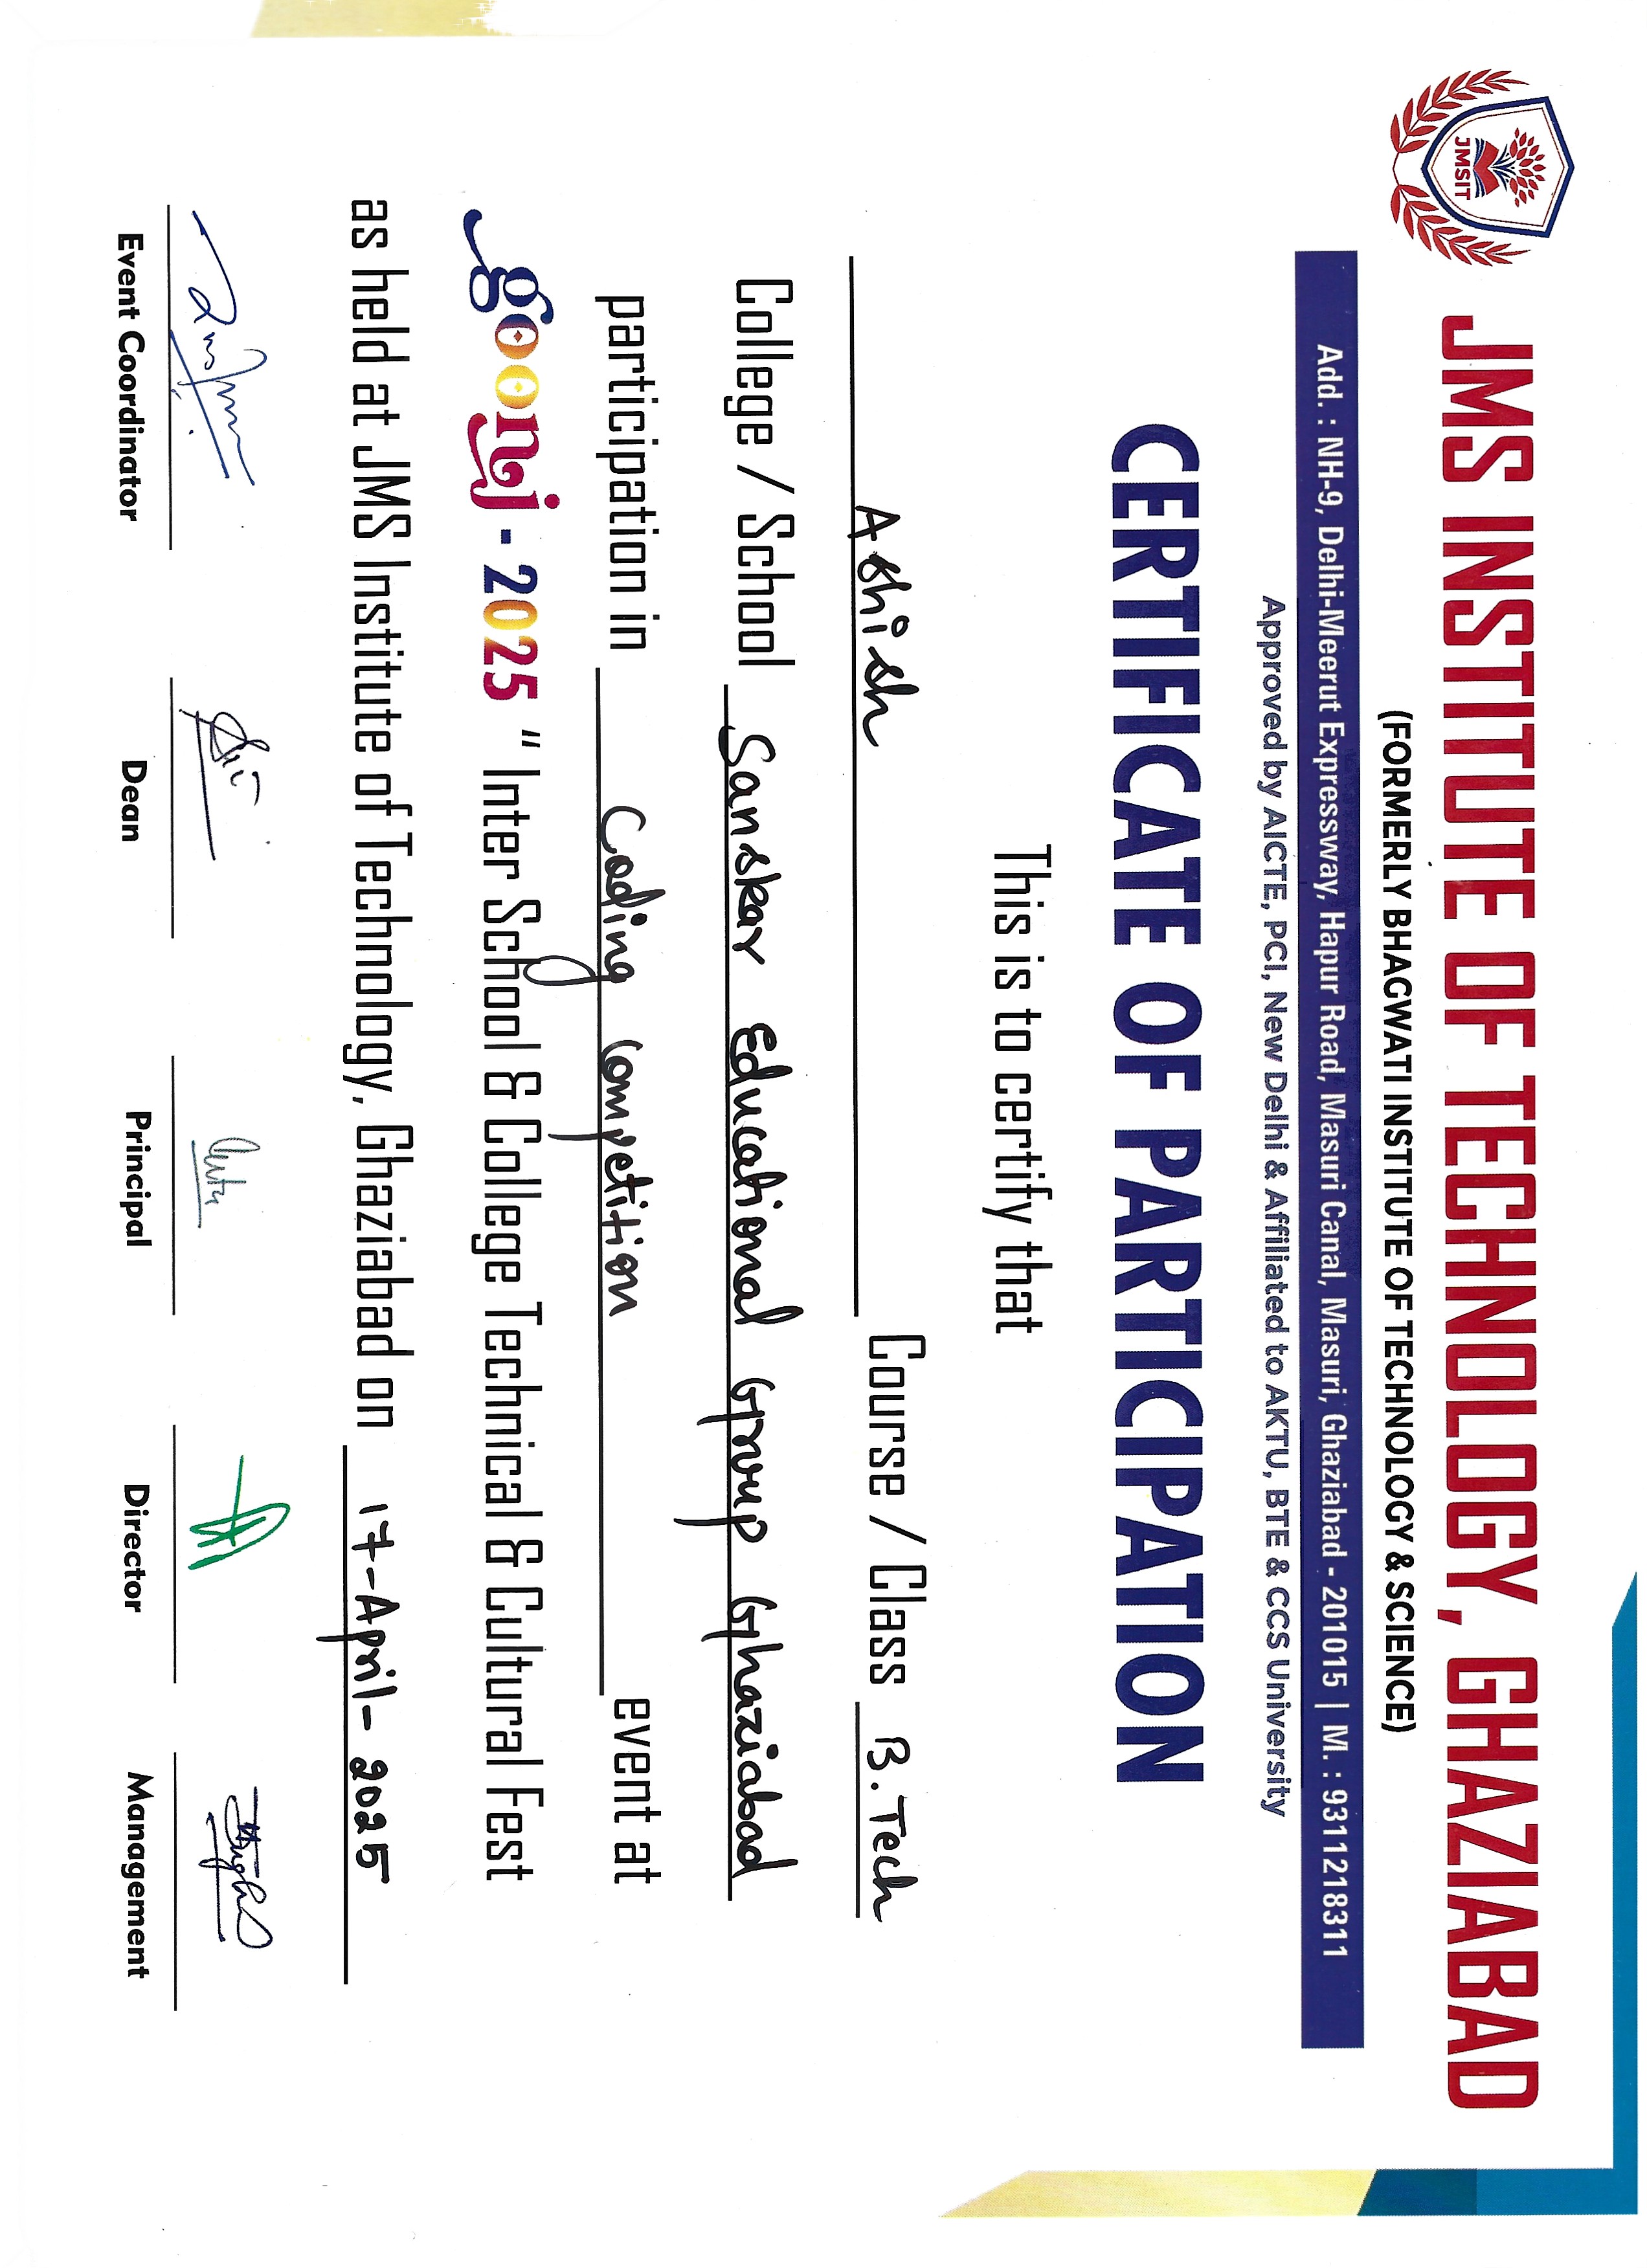 JMSIT
JMS INSTITUTE OF TECHNOLOGY, GHAZIABAD
(FORMERLY BHAGWATI INSTITUTE OF TECHNOLOGY & SCIENCE)
Add. : NH-9, Delhi-Meerut Expressway, Hapur Road, Masuri Canal, Masuri, Ghaziabad - 201015 | M. : 9311218311
Approved by AICTE, PCI, New Delhi & Affiliated to AKTU, BTE & CCS University
CERTIFICATE OF PARTICIPATION
This is to certify that
Ashish Course / Class B.Tech
College / School Sanskar Educational Group Ghaziabad
participation in Coding Competition event at
goonj - 2025 “ Inter School & College Technical & Cultural Fest
as held at JMS Institute of Technology, Ghaziabad on 17-April-2025
Event Coordinator Dean Principal Director Management